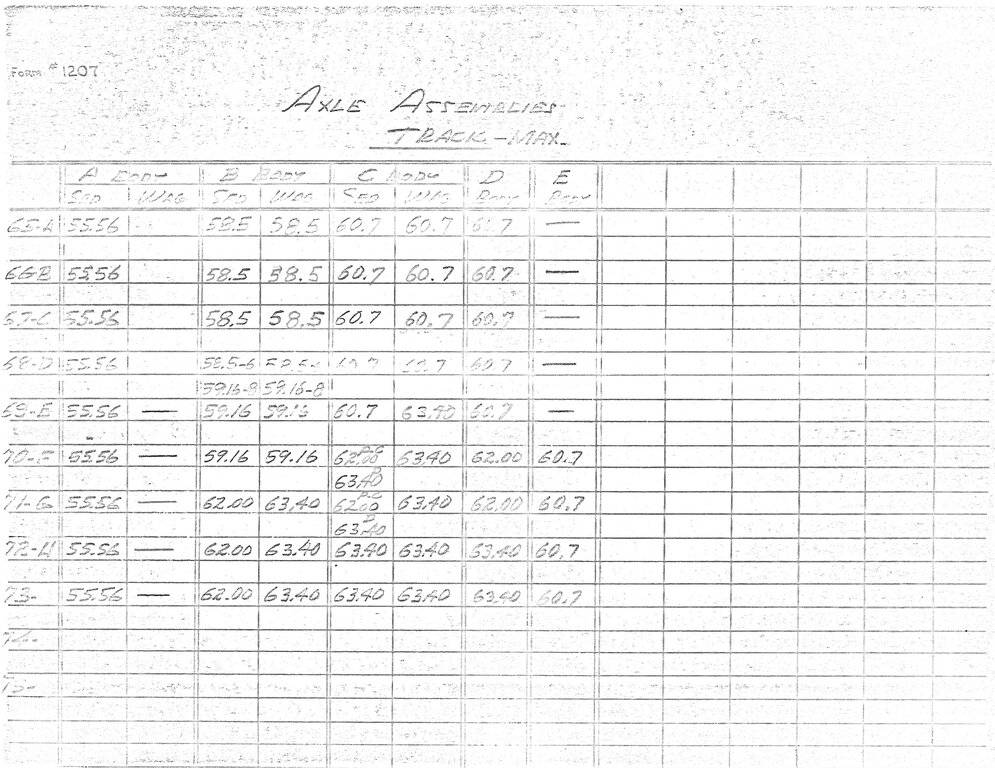 FORM #1207
AXLE ASSEMBLIES
TRACK-MAX.
A BODY B BODY C BODY D E
SED WAG SED WAG SED WAG BODY BODY
65-A 55.56 58.5 58.5 60.7 60.7 60.7 —
66-B 55.56 58.5 58.5 60.7 60.7 60.7 —
67-C 55.56 58.5 58.5 60.7 60.7 60.7 —
68-D 55.56 58.5-6 58.5- 60.7 60.7 60.7 —
59.16-8 59.16-8
69-E 55.56 — 59.16 59.16 60.7 63.40 60.7 —
70-F 55.56 — 59.16 59.16 62.00 63.40 62.00 60.7
63.40
71-G 55.56 — 62.00 63.40 62.00 63.40 62.00 60.7
63.40
72-H 55.56 — 62.00 63.40 63.40 63.40 63.40 60.7
73- 55.56 — 62.00 63.40 63.40 63.40 63.40 60.7
74-
75-